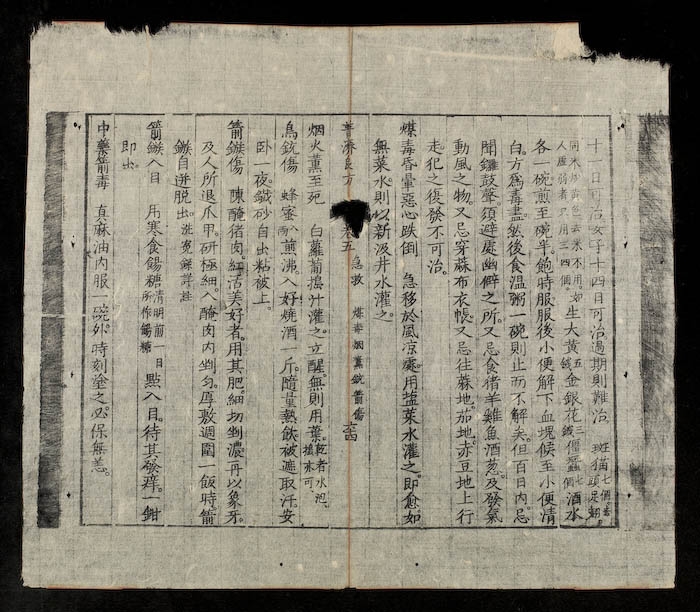 十一日可治女子十四日可治過期則難治 斑猫七個去頭足翅
同米炒黃色去米不用如人虛弱者只用三四個 生大黃五錢金銀花三錢僵蠶七個酒水
各一碗煎至碗半飽時服服後小便解下血塊候至小便清
白方爲毒盡然後食溫粥一碗則止而不解矣但百日內忌
聞鑼鼓聲須避處幽僻之所又忌食猪羊雞魚酒葱及發氣
動風之物又忌穿蔴布衣帳又忌往蔴地茄地赤豆地上行
走犯之後發不可治
煤毒昏暈惡心跌倒 急移於風凉處用塩菜水灌之即愈如
無菜水則以新汲井水灌之
普濟良方 卷五 急救 煤毒烟薰銃箭傷
烟火薰至死 白蘿蔔搗汁灌之立醒無則用葉乾者水泡搗亦可
鳥銃傷 蜂蜜八兩煎沸入好燒酒一斤隨量熱飲被蓋取汗安
卧一夜鐵砂自出粘被上
箭鏃傷 陳醃猪肉紅活美好者用其肥細切剉濃再以象牙
及人所退爪甲研極細入醃肉內剉勻厚敷週圍一飯時箭
鏃自迸脫出洗冤錄詳註
箭鏃入目 用寒食餳糖清明前一日所作餳糖 點入目待其發痒一鉗
即出
中藥箭毒 真麻油內服一碗外時刻塗之必保無恙